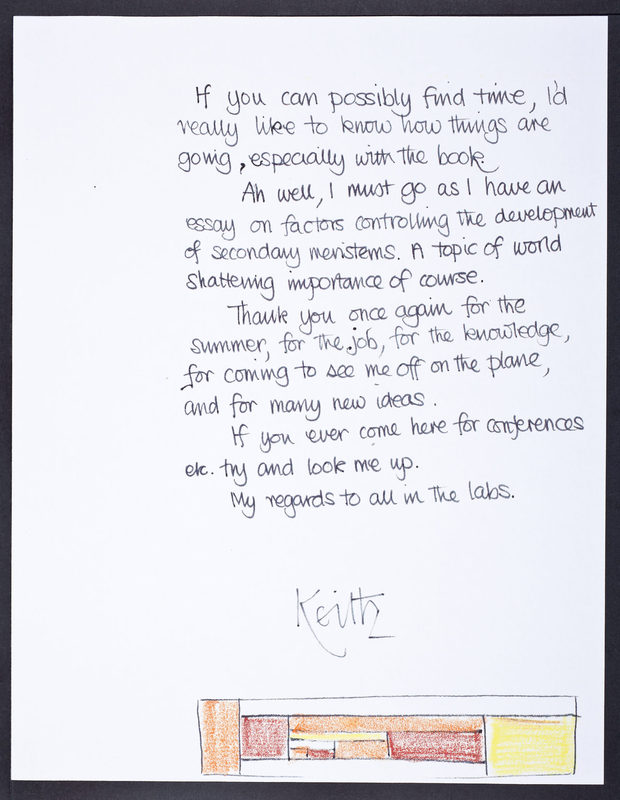 If you can possibly find time, I'd
really like to know how things are
going, especially with the book.
Ah well, I must go as I have an
essay on factors controlling the development
of secondary meristems. A topic of world
shattering importance of course.
Thank you once again for the
summer, for the job, for the knowledge,
for coming to see me off on the plane,
and for many new ideas.
If you ever come here for conferences
etc. try and look me up.
My regards to all in the labs.
Keith